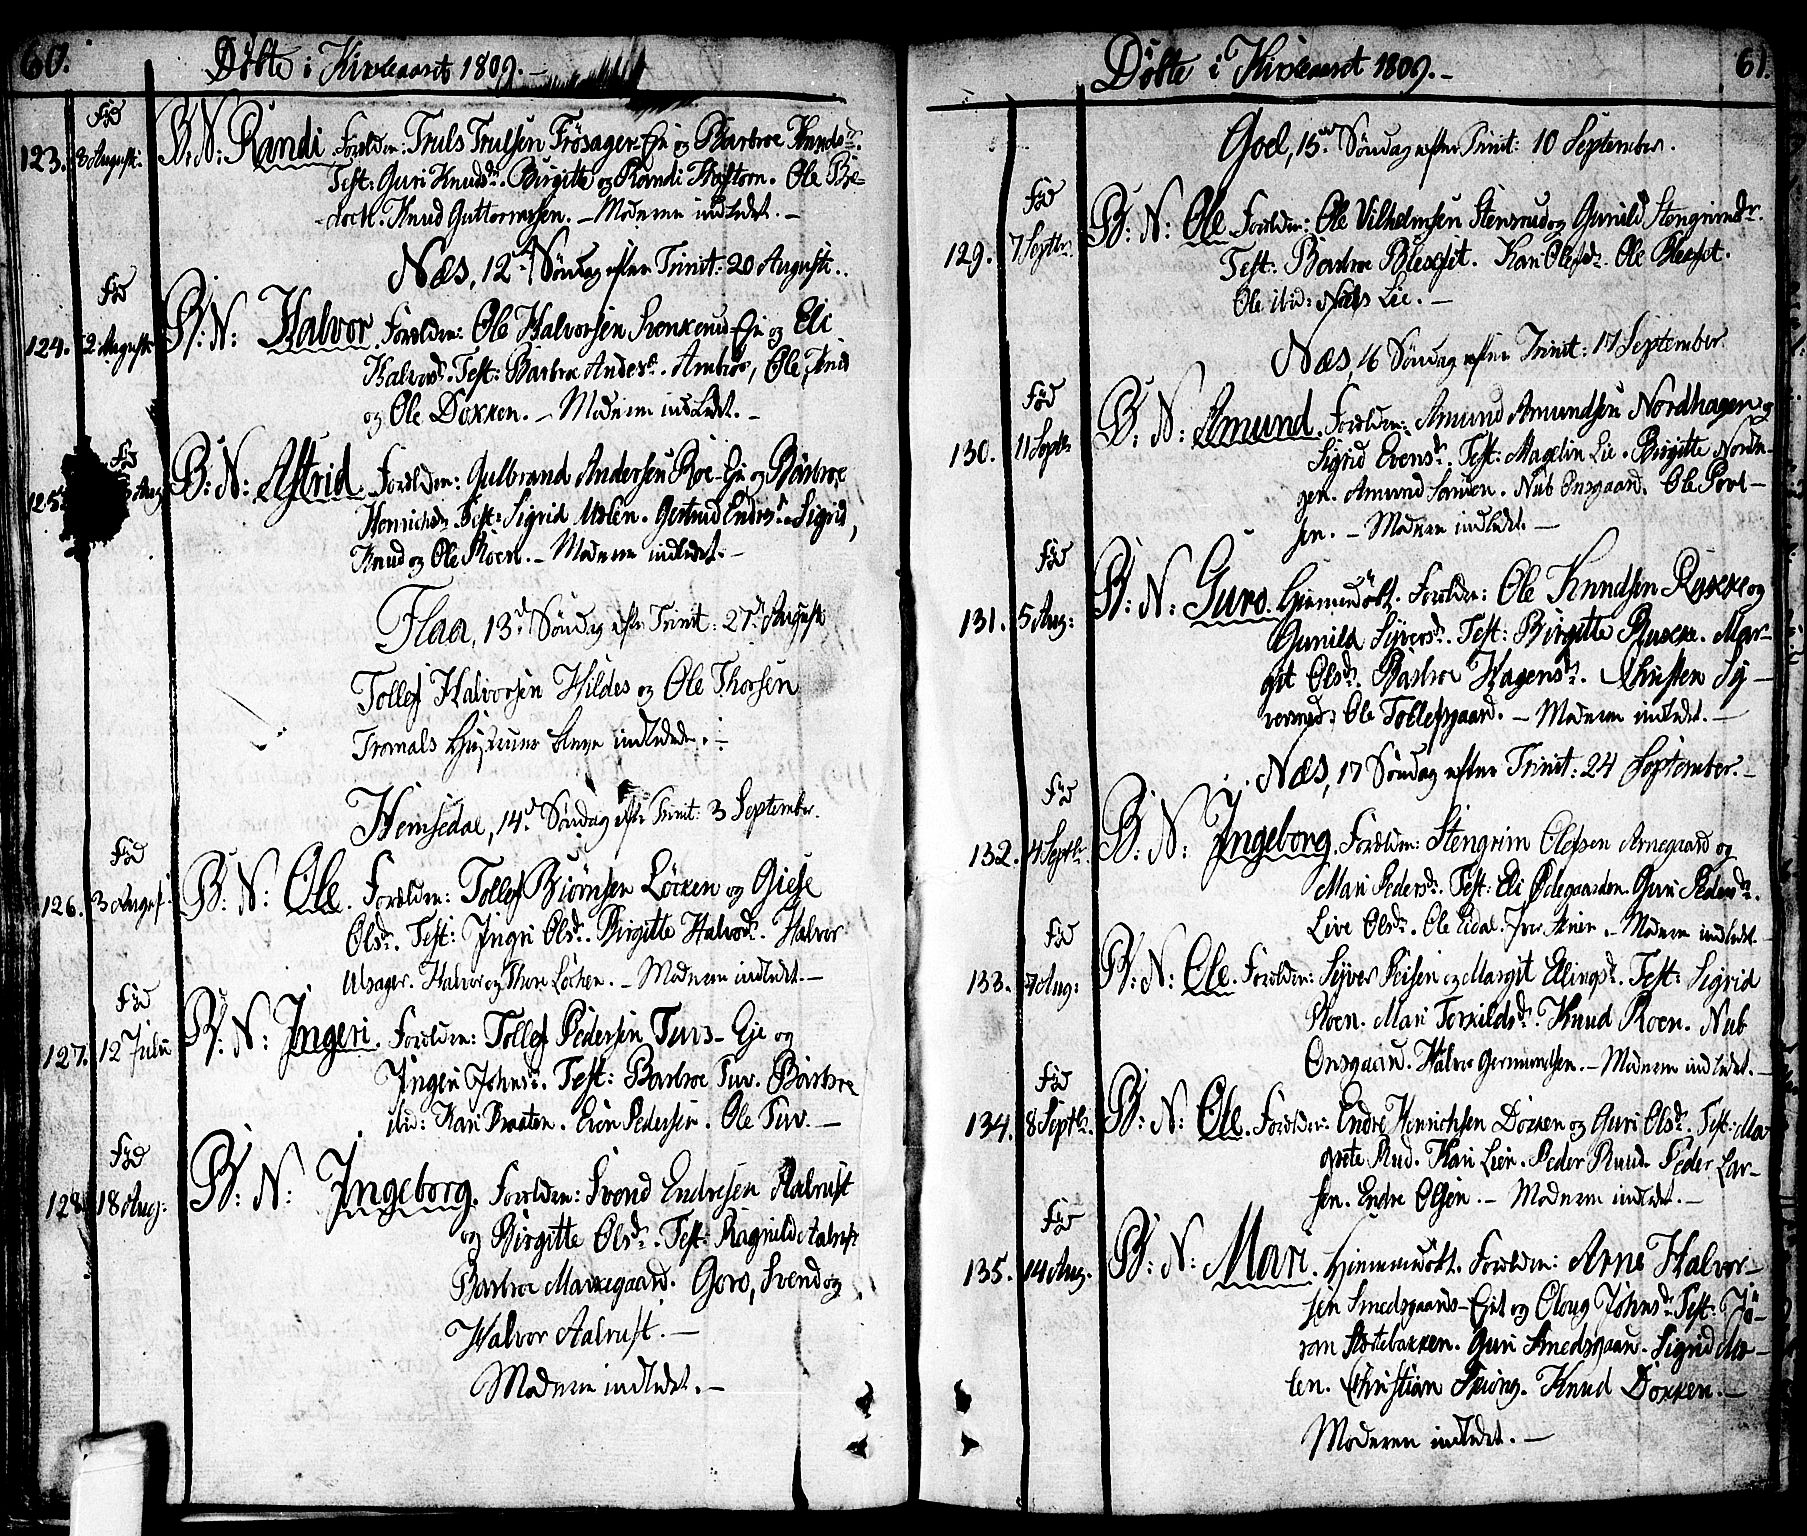 60.
Döbte i Kirkeaaret 1809.–
Fød
123. 8 August: B: N: Randi Forældre: Truls Trulsen Frösager-Eje og Barbroe Knudsdr.
Test: Guri Knudsdr. Birgitte og Randi Ole
Knud Guttormsen. – Moderen indledet. –
Næs, 12te Søndag efter Trinit: 20 August:.
Fød
124. 2 August: B: N: Halvor Forældre: Ole Halvorsen Svenkerud-Eje og Eli
Halvorsdr. Test: Barbroe Andersdr. Ole,
og Ole Dokken. – Moderen indledet. –
Fød
125. Aug B: N: Astrid Forældre: Gulbrand Andersen Roe-Eje og Barbroe
Henrichsdr. Test: Sigrid Gertrud Endresdr. Sigrid,
Knud og Ole Roen. – Moderen indledet. –
Flaa, 13de Søndag efter Trinit: 27de August
Tollef Halvorsen Hildes og Ole Thorsen
Tromals Hustruer bleve indledede. –
Hemsedal, 14de Søndag efter Trinit: 3 September.
Fød
126. 3 August B: N: Ole. Forældre: Tollef Biörnsen Löcken og Giese
Olsdr. Test: Ingri Olsdr. Birgitte Halvorsdr. Halvor
Ulsager. Halvor og Thore Löchen. – Moderen indledet. –
Fød
127. 12 Julii B: N: Ingeri. Forældre: Tollef Pedersen Tuvs-Eje og
Ingeri Johnsdr. Test: Barbroe Tuv. Barbroe
ibid: Kari Braaten. Even Pedersen. Ole Tuv. –
Fød
128. 18 Aug: B: N: Ingeborg. Forældre: Svend Endresen Aalrust
og Birgitte Olsdr. Test: Ragnild Aalrust
Barbroe Markegaard. Goro, Svend og
Halvor Aalrust. –
Moderen indledet. –
Döbte i Kirkeaaret 1809. – 61.
Goel, 15de Søndag efter Trinit: 10 September.
Fød
129. 7 Septbr: B: N: Ole Forældre: Ole Vilhelmsen Stensrud og Gunild Stengrimsdr.
Test: Barbroe Kari Olesdr. Ole
Ole ibid: Niels Lie. –
Næs, 16 Søndag efter Trinit: 17 September
Fød
130. 11 Septbr B: N: Amund. Forældre: Amund Amundsen Nordhagen og
Sigrid Evensdr. Test: Magelin Lie. Birgitte Nordha-
gen. Amund Sanden. Nub Onsgaard. Ole Povl-
sen. – Moderen indledet. –
Fød
131. 5 Aug: B: N: Guro. Hjemmedöbt. Forældre: Ole Knudsen Rukke og
Gunild Syversdr. Test: Birgitte Rukke. Mar-
git Olsdr. Barbroe Hagensdr. Christen Sy-
Ole Tollefsgaard. – Moderen indledet. –
Næs, 17 Søndag efter Trinit: 24 September. –
Fød
132. 4 Septbr. B: N: Ingeborg. Forældre: Stengrim Olesen Arnegaard og
Mari Pedersdr. Test: Eli Ødegaarden. Guri Pedersdr.
Live Olsdr. Ole Eidal. Iver – Moderen indledet. –
Fød
133. 7 Aug: B: N: Ole. Forældre: Syver og Margit Ellingsdr. Test: Sigrid
Roen. Mari Torkildsdr. Knud Roen. Nub
Onsgaard. Halvor Germundsen. – Moderen indledet. –
Fød
134. 8 Septbr. B: N: Ole. Forældre: Endre Henrichsen Dokken og Guri Olsdr. Test: Ma
grete Rud. Kari Lien. Peder Ruud. Peder Lar-
sen. Endre Olsen. – Moderen indledet. –
Fød
135. 14 Aug. B: N: Mari. Hjemmedöbt. Forældre: Arne Halvor-
sen Smedsgaards-Eje og Oloug Johnsdr. Test: Jö-
ran Guri Smedsgaard. Sigrid Mo-
len. Christian Skiöng. Knud Dokken. –
Moderen indledet. –